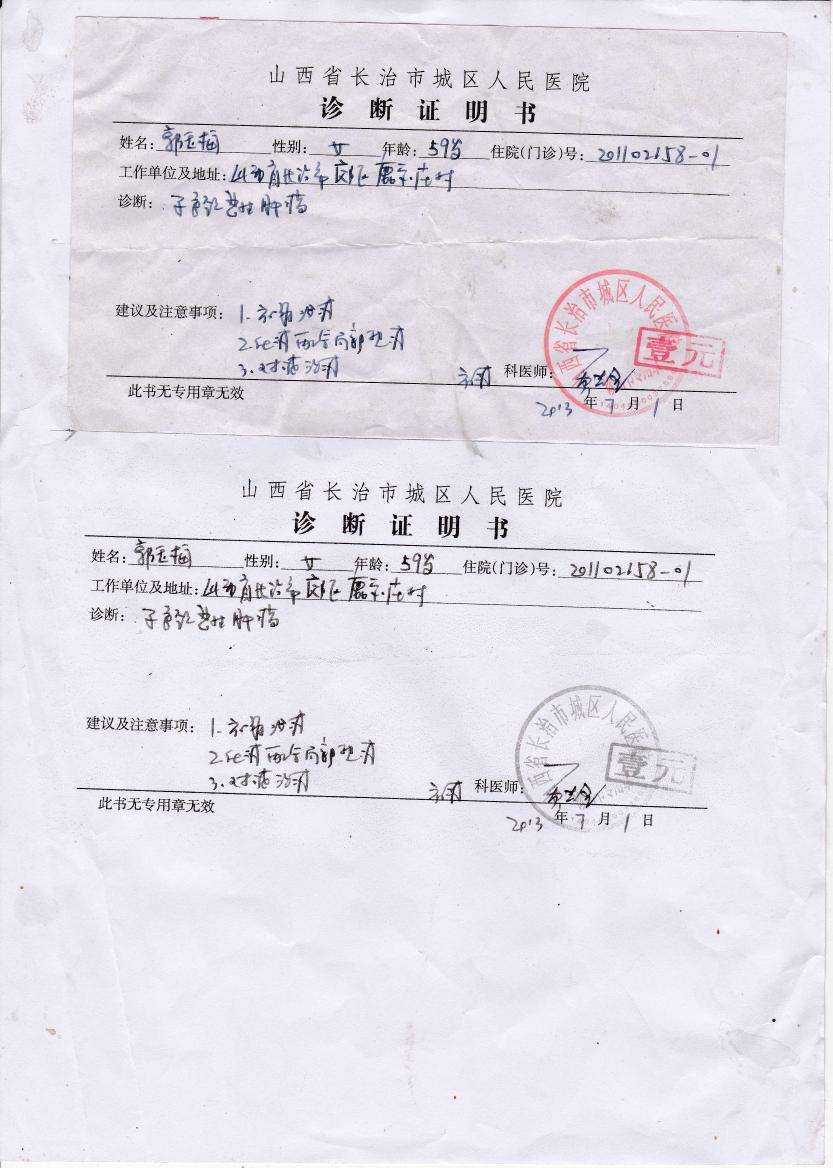 山西省长治市城区人民医院
诊断证明书
姓名：郭玉梅 性别：女 年龄：59岁 住院(门诊)号：201102158-01
工作单位及地址：山西省长治市郊区 庄村
诊断：子宫 恶性肿瘤
建议及注意事项：1. 治疗
2. 化疗配合局部 疗
3. 对症治疗
科医师：
此书无专用章无效
2013年7月1日
西省长治市城区人民医
壹元
山西省长治市城区人民医院
诊断证明书
姓名：郭玉梅 性别：女 年龄：59岁 住院(门诊)号：201102158-01
工作单位及地址：山西省长治市郊区 庄村
诊断：子宫 恶性肿瘤
建议及注意事项：1. 治疗
2. 化疗配合局部 疗
3. 对症治疗
科医师：
此书无专用章无效
2013年7月1日
西省长治市城区人民医
壹元